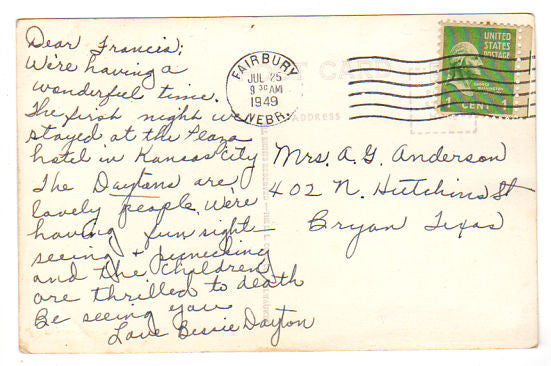 Dear Francis;
We're having a
wonderful time.
The first night we
stayed at the Plaza
hotel in Kansas City
The Daytons are
lovely people. We're
having fun sight-
seeing + picnicking
and the children
are thrilled to death
Be seeing you
Love Bessie Dayton
FAIRBURY
JUL 25
9 30 AM
1949
NEBR.
UNITED
STATES
POSTAGE
WASHINGTON
1 CENT 1
ADDRESS
Mrs. A. G. Anderson
402 N. Hutchins St
Bryan Texas